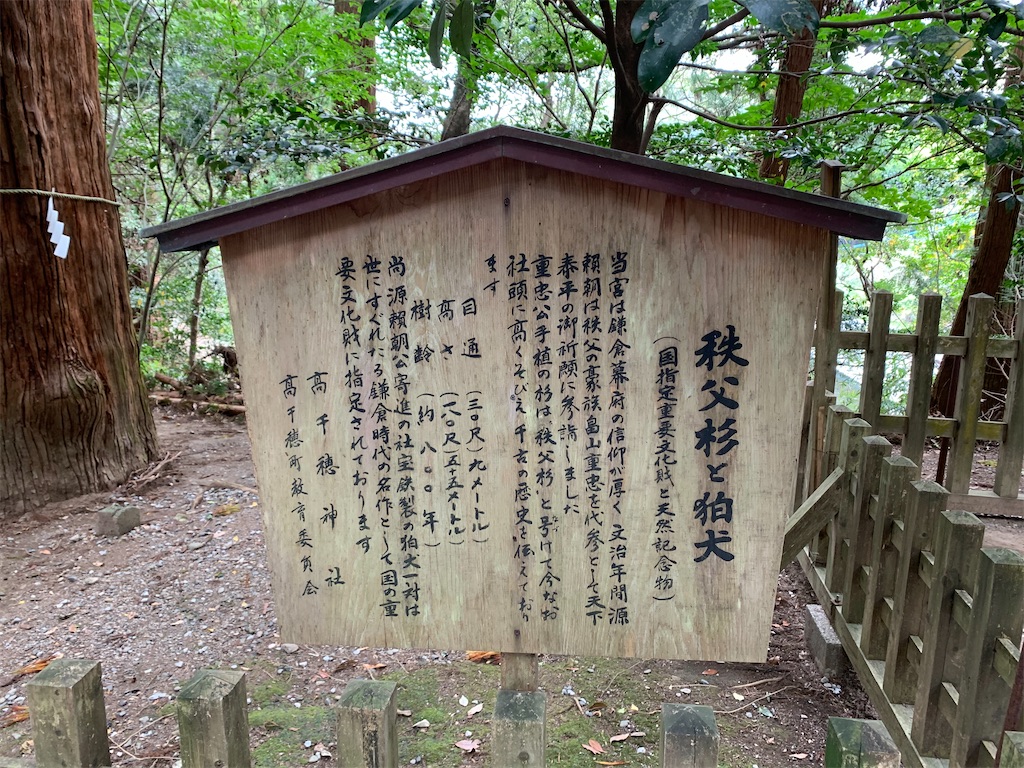 秩父杉と狛犬
（国指定重要文化財と天然記念物）
当宮は鎌倉幕府の信仰が厚く文治年間源
頼朝は秩父の豪族畠山重忠を代参として天下
泰平の御祈願に参詣しました
重忠公手植の杉は、秩父杉、と号けて今なお
社頭に高くそびえ千古の歴史を伝えており
ます
目通（三〇尺）九メートル）
高さ（一八〇尺五五メートル）
樹齢（約八〇〇年）
尚源頼朝公寄進の社宝鉄製の狛犬一対は
世にすぐれたる鎌倉時代の名作として国の重
要文化財に指定されております
高千穂神社
高千穂町教育委員会